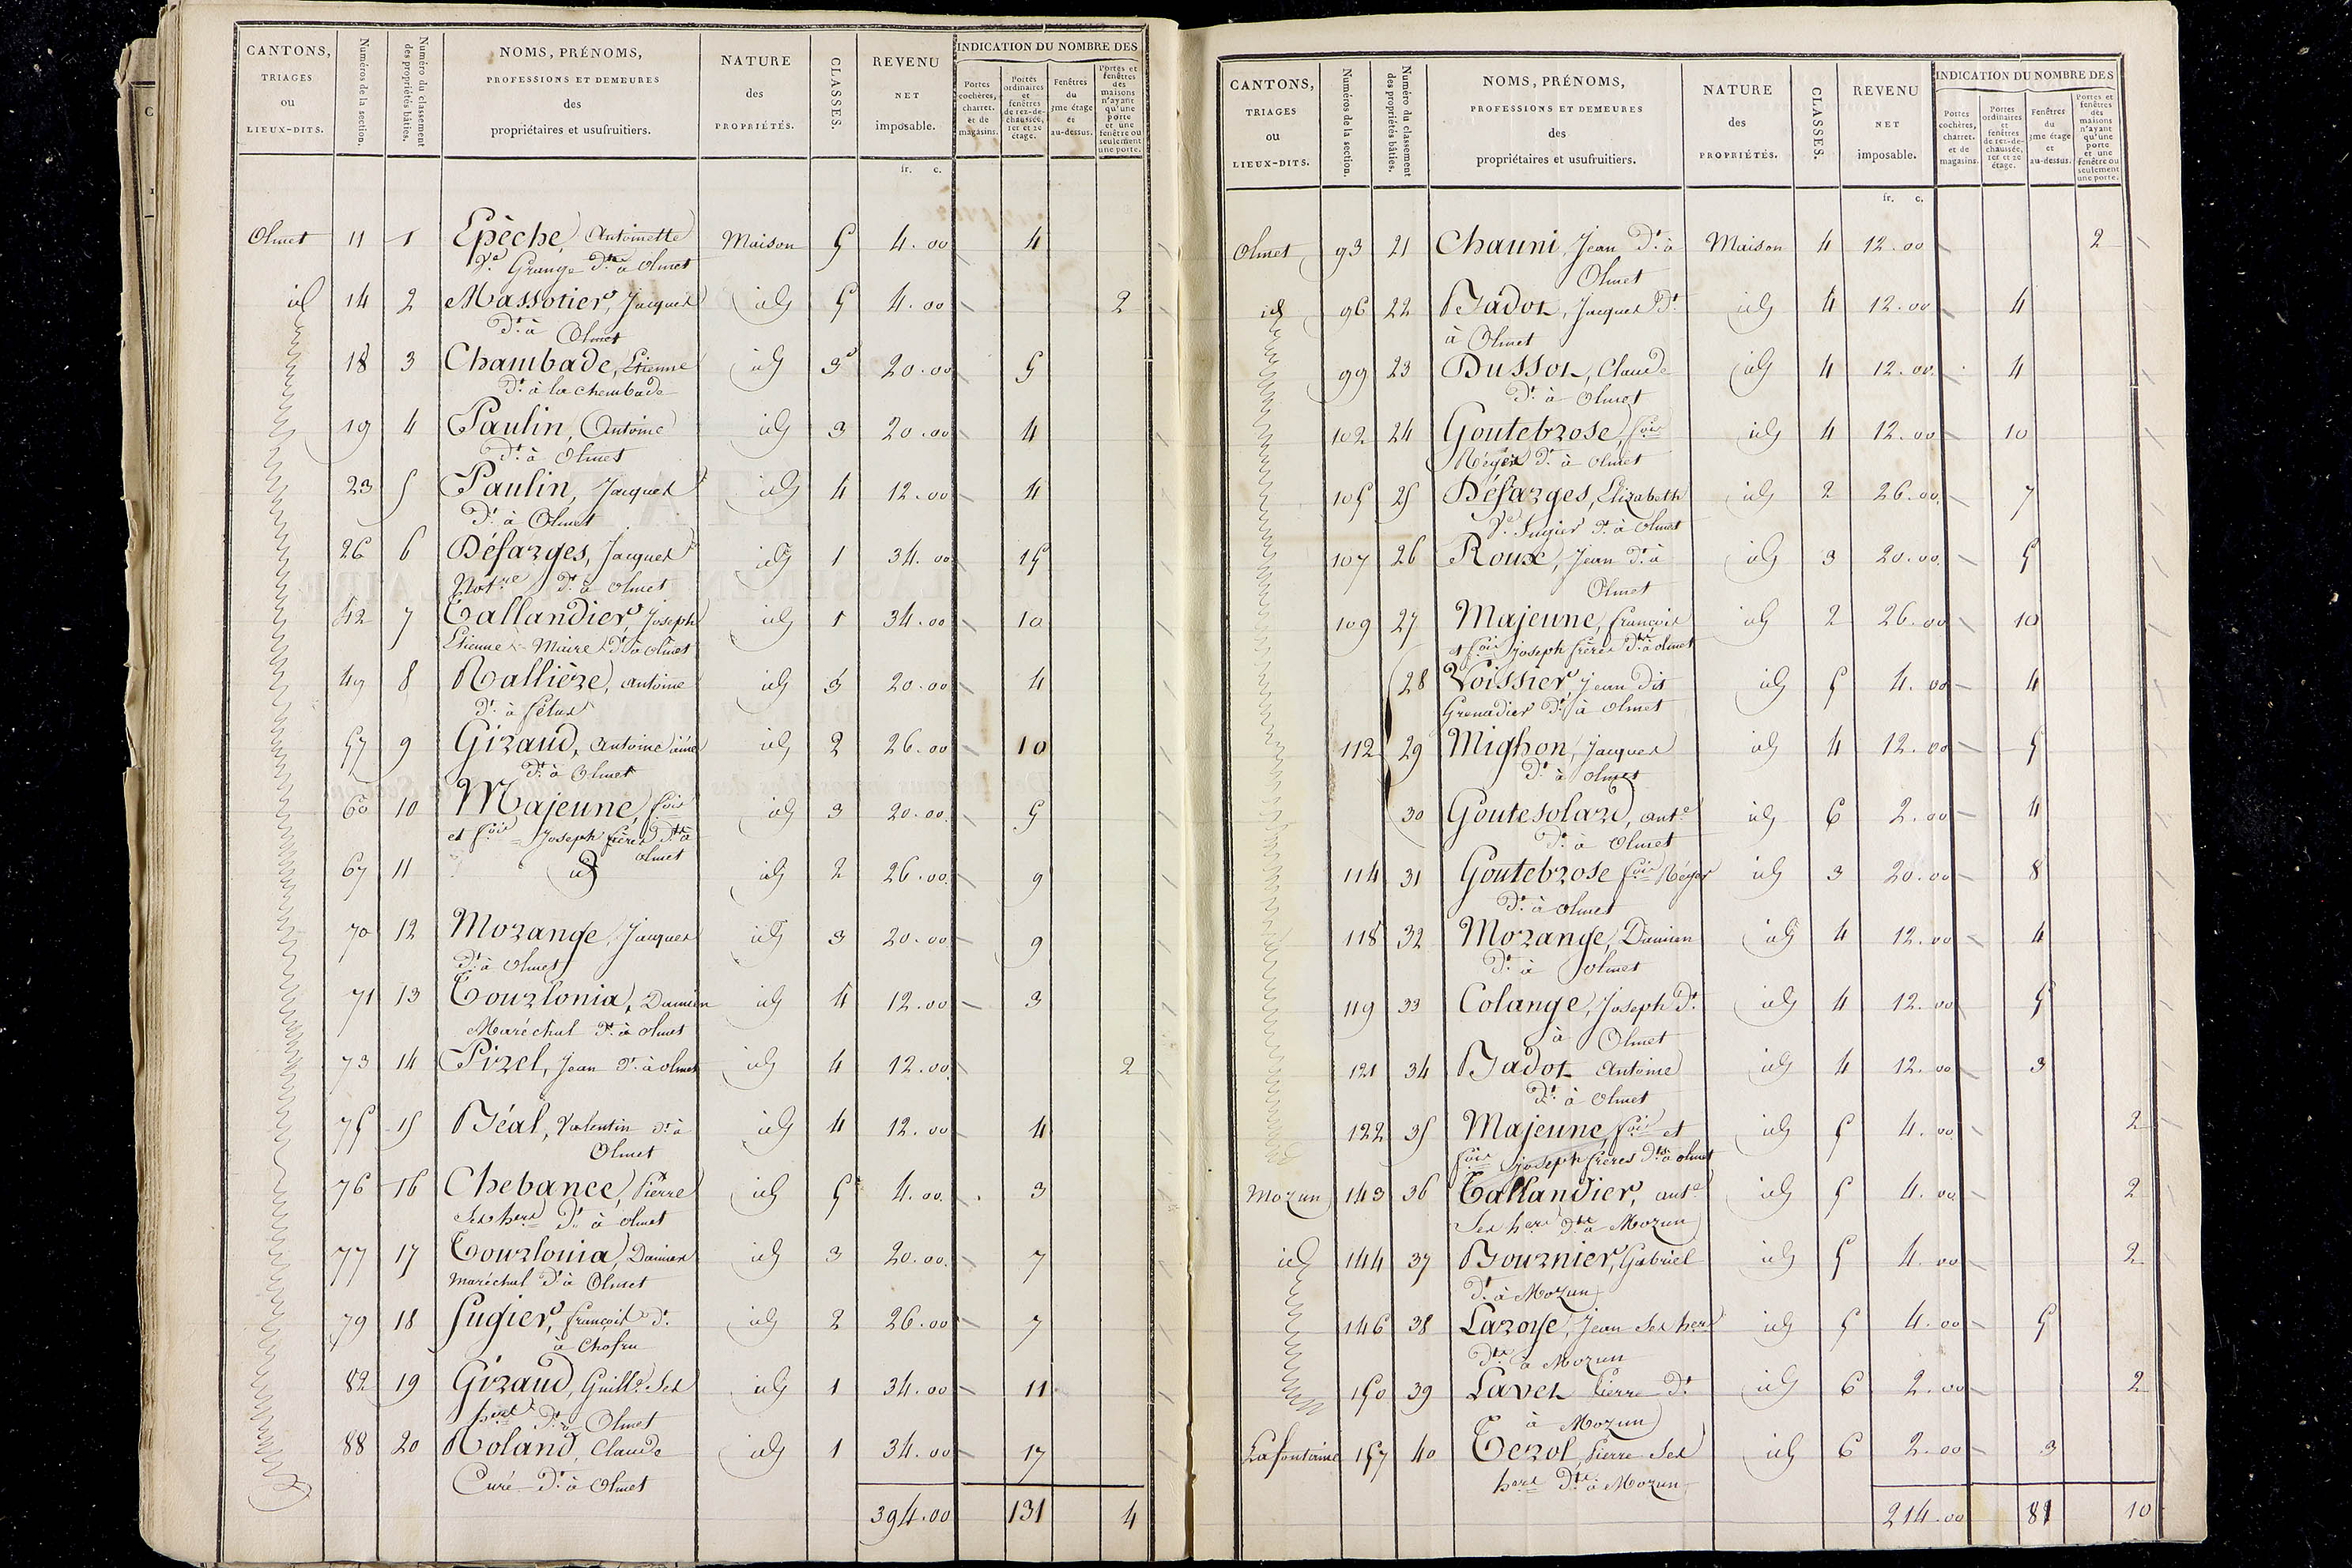 CANTONS, TRIAGES ou LIEUX-DITS. Numéros de la section. Numéro du classement des propriétés bâties. NOMS, PRÉNOMS, PROFESSIONS ET DEMEURES des propriétaires et usufruitiers. NATURE des PROPRIÉTÉS. CLASSES. REVENU NET imposable. INDICATION DU NOMBRE DES
Portes cochères, charret. et de magasins. Portes ordinaires et fenêtres de rez-de-chaussée, 1er et 2e étage. Fenêtres du 3me étage et au-dessus. Portes et fenêtres des maisons n'ayant qu'une porte et une fenêtre ou seulement une porte.
fr. c.
Olmet 11 1 Epèche, Antoinette Maison 5 4.00 4
Ve Grange dte à Olmet
id 14 2 Massotier, Jacques id 5 4.00 2
dt à Olmet
18 3 Chambade, Etienne id 3 20.00 5
dt à la chembade
19 4 Paulin, Antoine id 3 20.00 4
dt à Olmet
23 5 Paulin, Jacques id 4 12.00 4
dt à Olmet
26 6 Défarges, Jacques id 1 34.00 15
Notre dt à Olmet
42 7 Tallandier, Joseph id 1 34.00 10
Etienne Maire dt à Olmet
49 8 Rallière, antoine id 3 20.00 4
dt à
57 9 Giraud, antoine ainé id 2 26.00 10
dt à Olmet
60 10 Majeune, fois id 3 20.00 5
et fois Joseph frères dts à
olmet
67 11 id id 2 26.00 9
70 12 Morange, Jacques id 3 20.00 9
dt à Olmet
71 13 Tourlonia, Damien id 4 12.00 3
Maréchal dt à Olmet
73 14 Pirel, Jean dt à olmet id 4 12.00 2
75 15 Béal, Valentin dt à id 4 12.00 4
Olmet
76 16 Chebance, Pierre id 5 4.00 3
Ses hers dt à Olmet
77 17 Tourlonia, Damien id 3 20.00 7
maréchal dt à Olmet
79 18 Sugier, françois dt id 2 26.00 7
à Chofru
82 19 Giraud, Guille Ses id 1 34.00 11
hers dt à Olmet
88 20 Roland, Claude id 1 34.00 17
Curé dt à Olmet
394.00 131 4
CANTONS, TRIAGES ou LIEUX-DITS. Numéros de la section. Numéro du classement des propriétés bâties. NOMS, PRÉNOMS, PROFESSIONS ET DEMEURES des propriétaires et usufruitiers. NATURE des PROPRIÉTÉS. CLASSES. REVENU NET imposable. INDICATION DU NOMBRE DES
Portes cochères, charret. et de magasins. Portes ordinaires et fenêtres de rez-de-chaussée, 1er et 2e étage. Fenêtres du 3me étage et au-dessus. Portes et fenêtres des maisons n'ayant qu'une porte et une fenêtre ou seulement une porte.
fr. c.
Olmet 93 21 Chauni, Jean dt à Maison 4 12.00 2
Olmet
id 96 22 Badot, Jacques dt id 4 12.00 4
à Olmet
99 23 Dussot, Claude id 4 12.00 4
dt à Olmet
102 24 Goutebrose, fois id 4 12.00 10
Néyer dt à Olmet
105 25 Défarges, Elizabeth id 2 26.00 7
Ve Sugier dt à Olmet
107 26 Roux, Jean dt à id 3 20.00 5
Olmet
109 27 Majeune, françois id 2 26.00 10
et fois joseph frères dts à olmet
28 Voissier, Jean dit id 5 4.00 4
Grenadier dt à Olmet
112 29 Mighon, Jacques id 4 12.00 5
dt à olmet
30 Goutesolard, ante id 6 2.00 4
dt à Olmet
114 31 Goutebrose fois Néyer id 3 20.00 8
dt à olmet
118 32 Morange, Damien id 4 12.00 4
dt à olmet
119 33 Colange, Joseph dt id 4 12.00 5
à Olmet
121 34 Badot Antoine id 4 12.00 3
dt à Olmet
122 35 Majeune, fois et id 5 4.00 2
fois joseph frères dts à olmet
Mozun 143 36 Tallandier, ante id 5 4.00 2
Ses hers dts à Mozun
id 144 37 Bournier, Gabriel id 5 4.00 2
dt à Mozun
146 38 Laroye, Jean Ses hers id 5 4.00 5
dts à Mozun
150 39 Lavet Pierre dt id 6 2.00 2
à Mozun
Lafontaine 157 40 Terol, Pierre Ses id 6 2.00 3
hers dts à Mozun
214.00 81 10